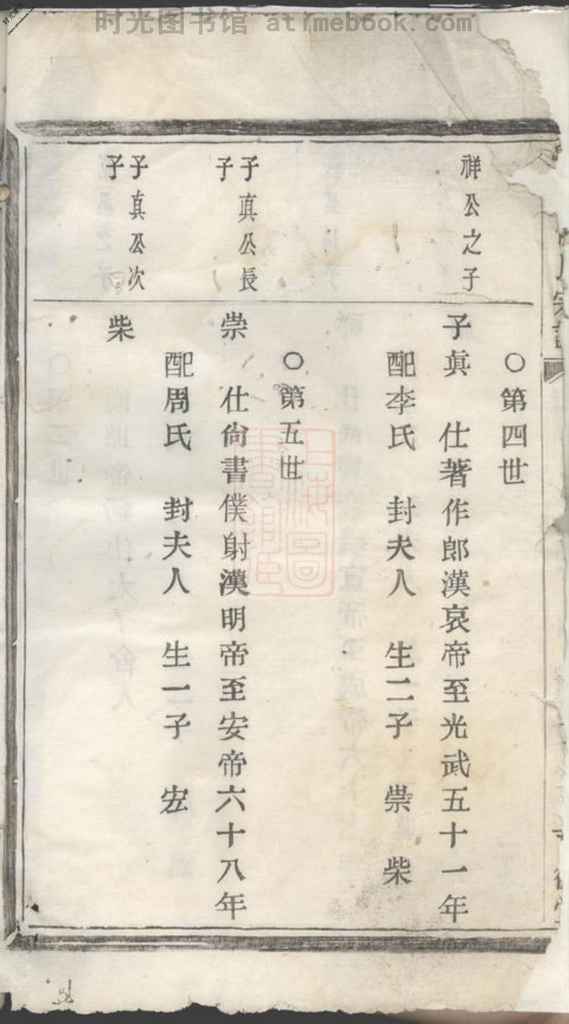 时光图书馆 atimebook.com
○第四世
祥公之子
子眞 仕著作郎漢哀帝至光武五十一年
配李氏 封夫人 生二子 崇 柴
○第五世
子真公長子
崇 仕尙書僕射漢明帝至安帝六十八年
配周氏 封夫人 生一子 宏
子真公次子
柴